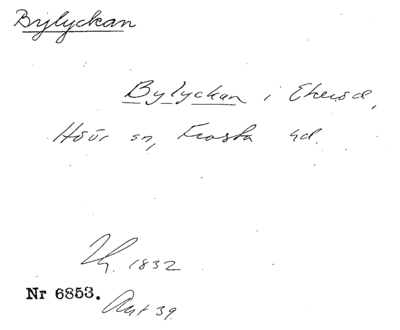 Bylyckan
Bylyckan i Ekeröd,
Höör sn, Frosta hd.
Lh. 1832
Nr 6853.
Akt 39.